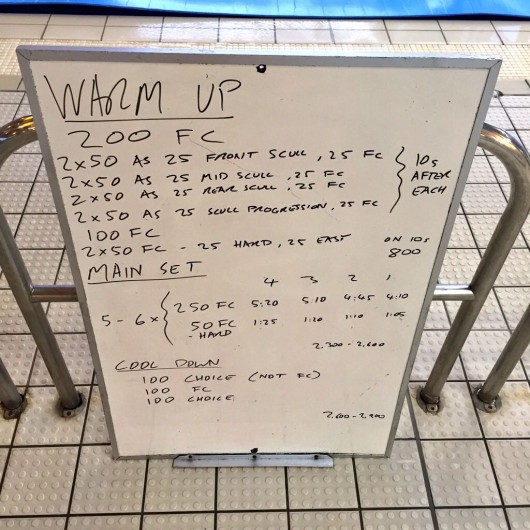 WARM UP
200 FC
2x50 AS 25 FRONT SCULL, 25 FC
2x50 AS 25 MID SCULL, 25 FC
2x50 AS 25 REAR SCULL, 25 FC
2x50 AS 25 SCULL PROGRESSION, 25 FC
10s
AFTER
EACH
100 FC
2x50 FC - 25 HARD, 25 EASY ON 10s
800
MAIN SET
4 3 2 1
5-6x 250 FC 5:20 5:10 4:45 4:10
50 FC 1:25 1:20 1:10 1:05
- HARD
2,300-2,600
COOL DOWN
100 CHOICE (NOT FC)
100 FC
100 CHOICE
2,600-2,900